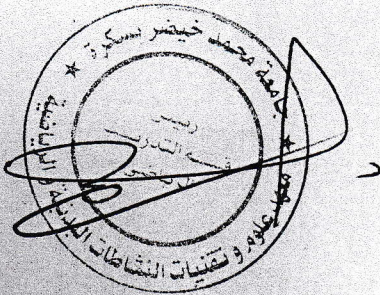 جامعة محمد خيضر بسكرة
معهد علوم و تقنيات النشاطات البدنية و الرياضية
رئيس
قسم التدريب